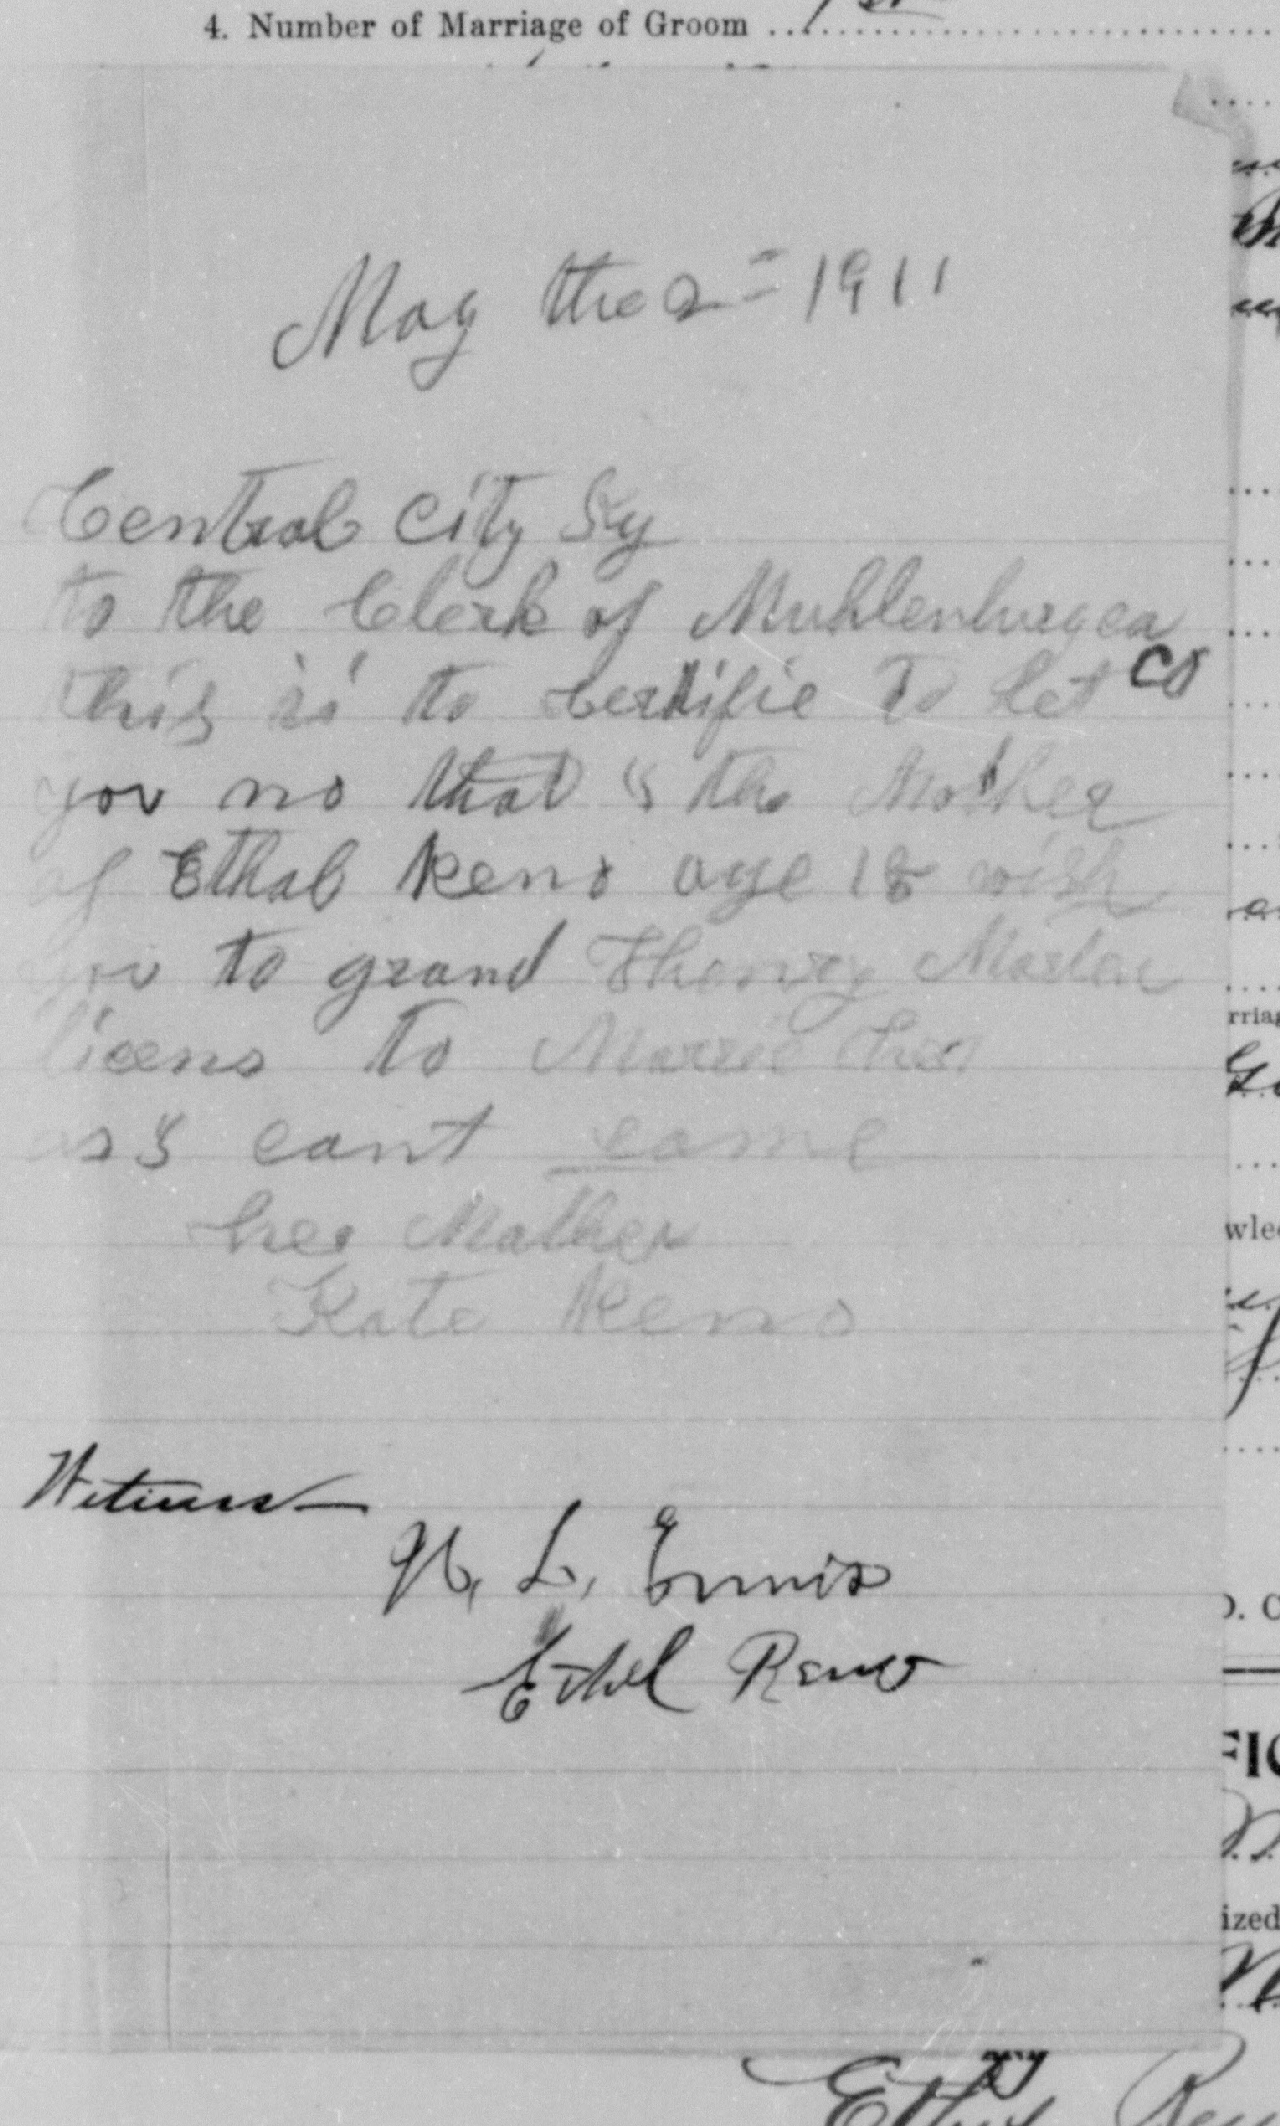 4. Number of Marriage of Groom
May the 2 = 1911
Central City Ky
to the Clerk of Muhlenburg co
Co
this is to certifie to let
you no that I the Mother
of Ethal Reno age 18 wish
you to grand Thenry
licens to Marrie her
as I cant come
her Mother
Kate Reno
Witness
L. Ennis
Ethel Reno